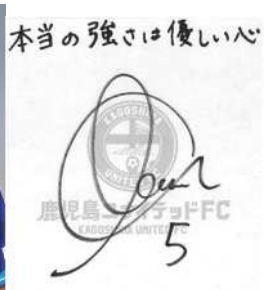 本当の強さは優しい心
KAGOSHIMA
UNITED FC
鹿児島ユナイテッドFC
KAGOSHIMA UNITED FC
5